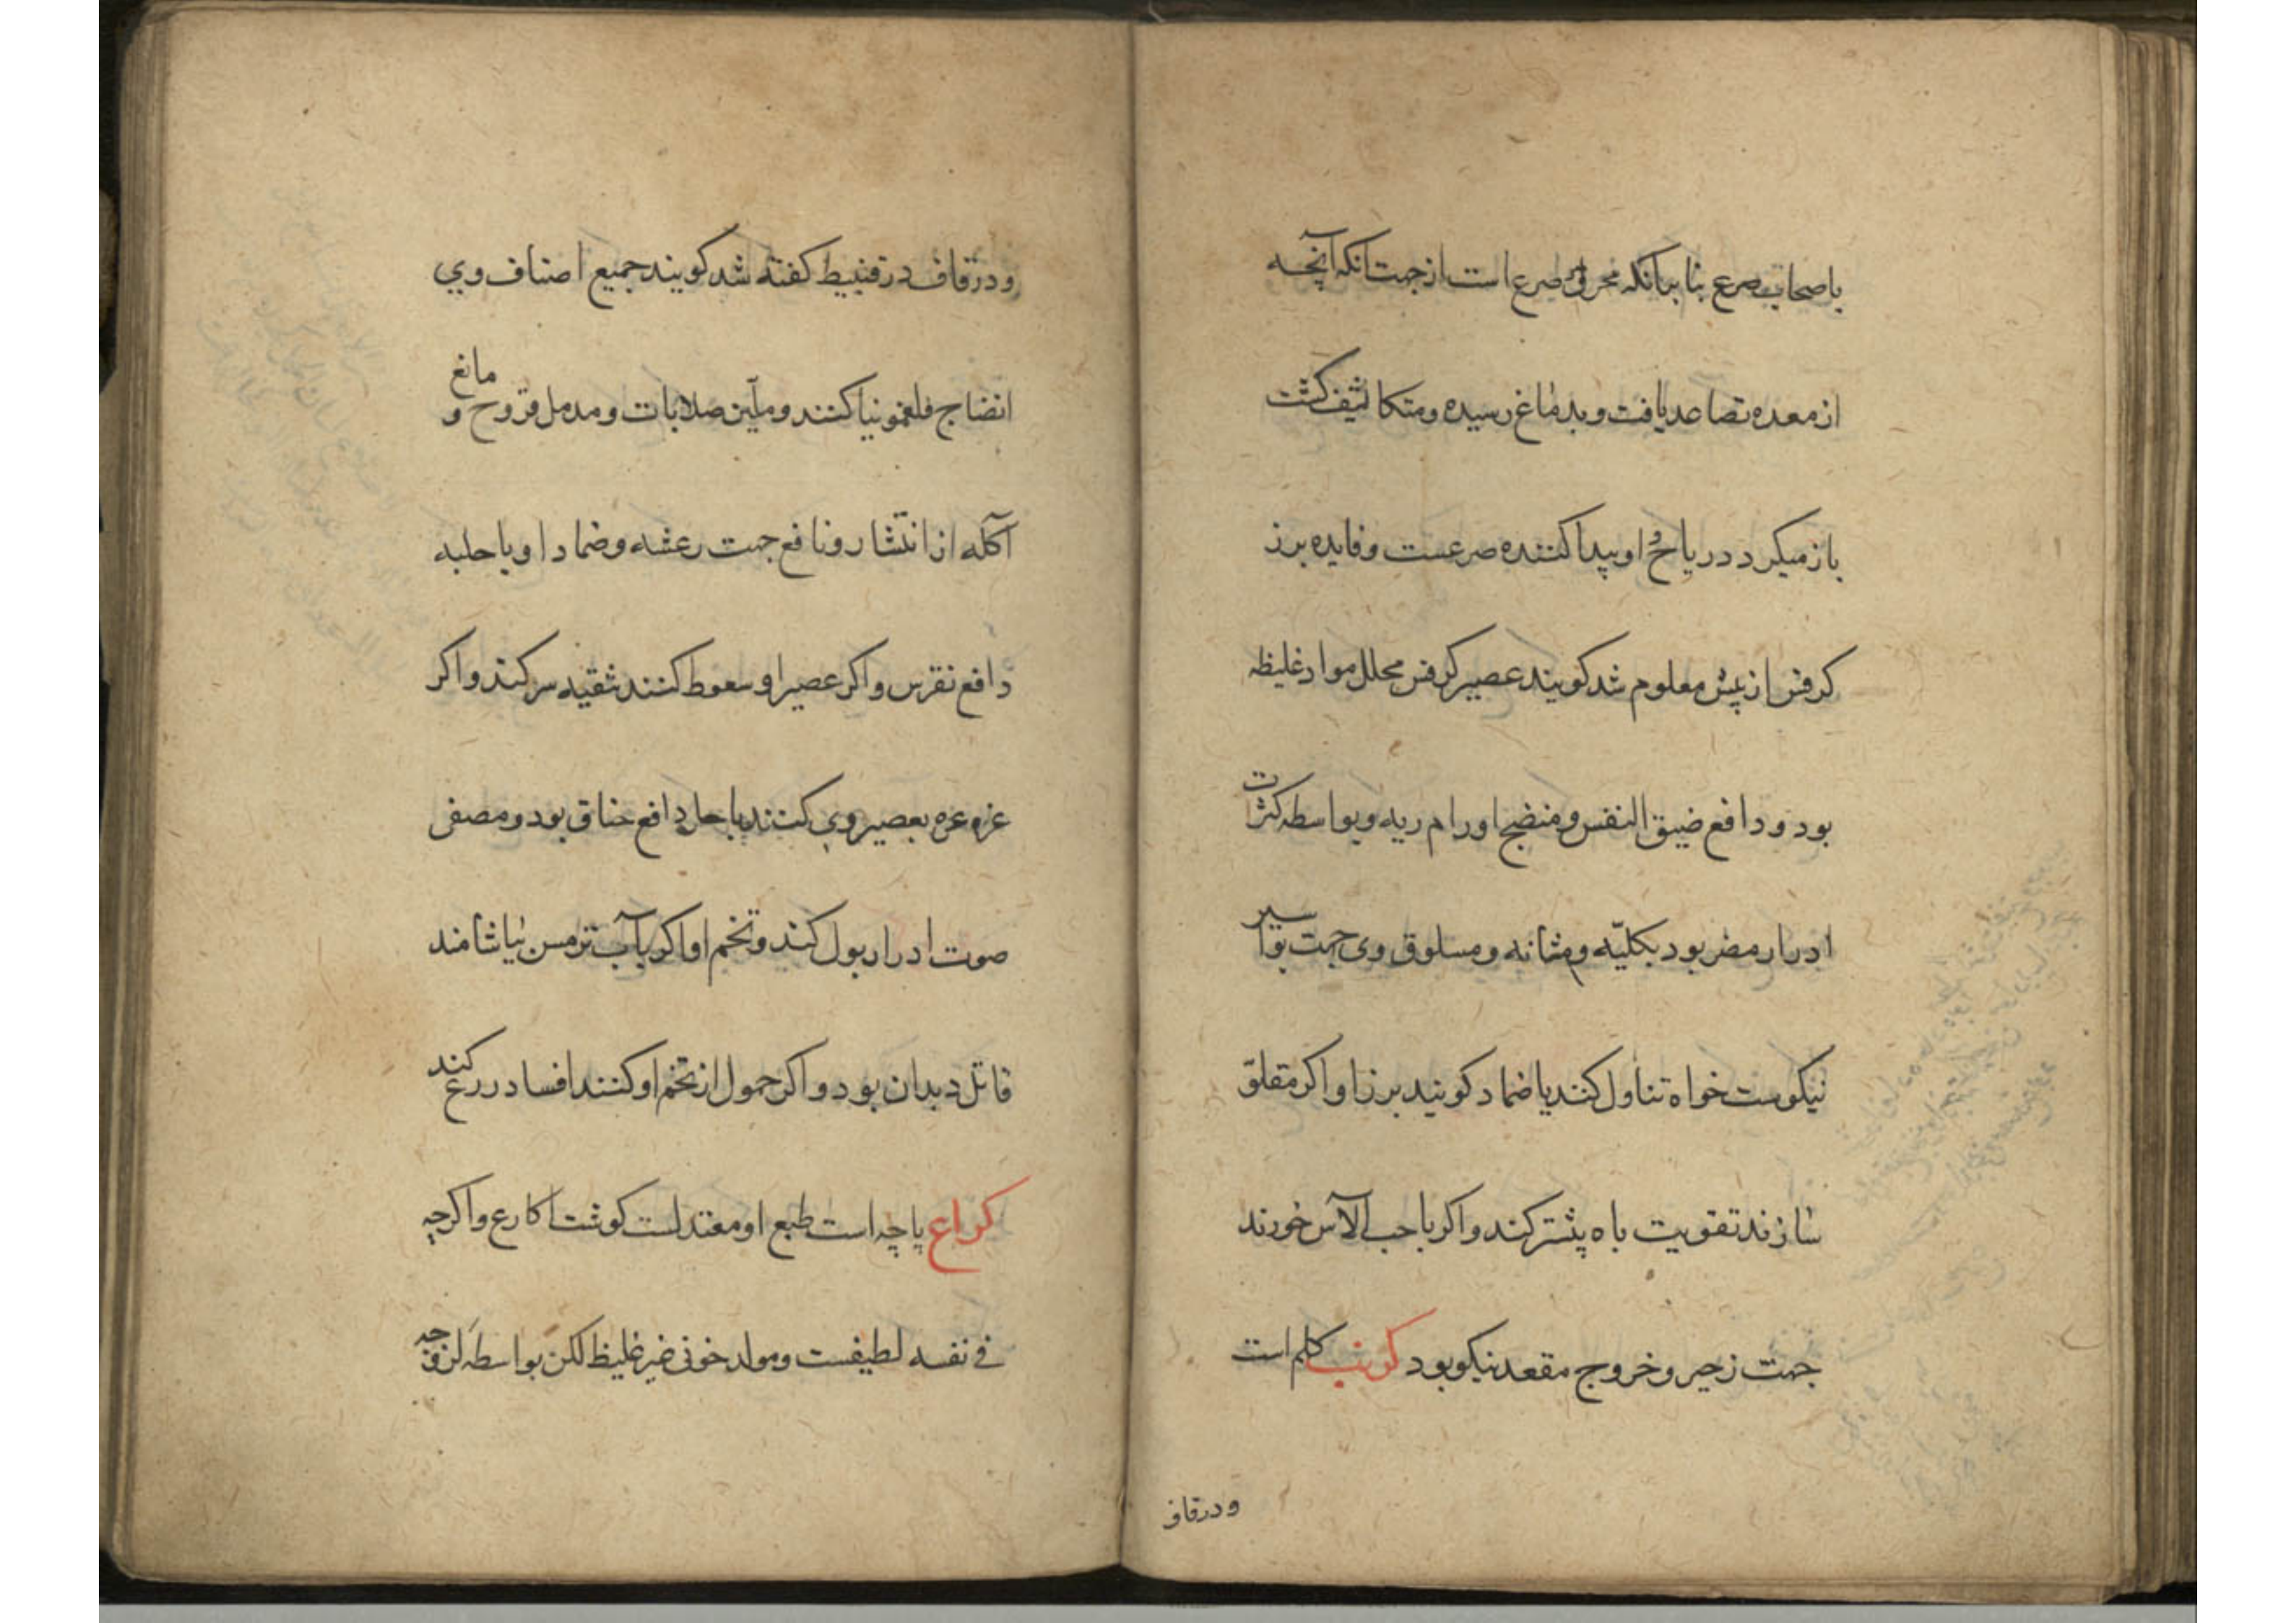 باصحاب صرع بنا برانکه محرک صرع است از جهت انکه آنچه
از معده تصاعد یافت و بدماغ رسیده و متکاثیف کشت
باز میکردد ریاح او پیدا کننده صرعست و فایده برز
کرفس از پیش معلوم شد کویند عصیر کرفس محلل مواد غلیظه
بود و دافع ضیق النفس و منضج اورام ریه و بواسطه کثرت
ادرار مضر بود بکلیّه و مثانه و مسلوق وی جهت بواسیر
نیکوست خواه تناول کنند یا ضماد کویند برز او اکر مقلوّ
سازند تقویت باه پیشتر کند و اکر با حب الآس خورند
جهت زحیر و خروج مقعد نیکو بود کرنب کلم است
ودرقاف
و در قاف در قنبیط کفته شد کویند جمیع اصناف وي
انضاج فلغمونیا کنند و ملیّن صلابات و مدمل قروح و مانع
آکله از انتشار و نافع جهت رعشه و ضماد او با حلبه
دافع نقرس و اکر عصیر او سعوط کنند ثقیه سر کند و اکر
غروعره بعصیر وی کنند باخل دافع خناق بود و مصفی
صوت ادرار بول کند و تخم او اکر بآب ترمس بیاشامند
قاتل دیدان بود و اکر حمول از تخم او کنند افساد ررع کند
کراع پاچه است طبع او معتدلست کوشت اکارع و اکرچه
فی نفسه لطیفست و مولد خونی غیر غلیظ لکن بواسطه لزوجة